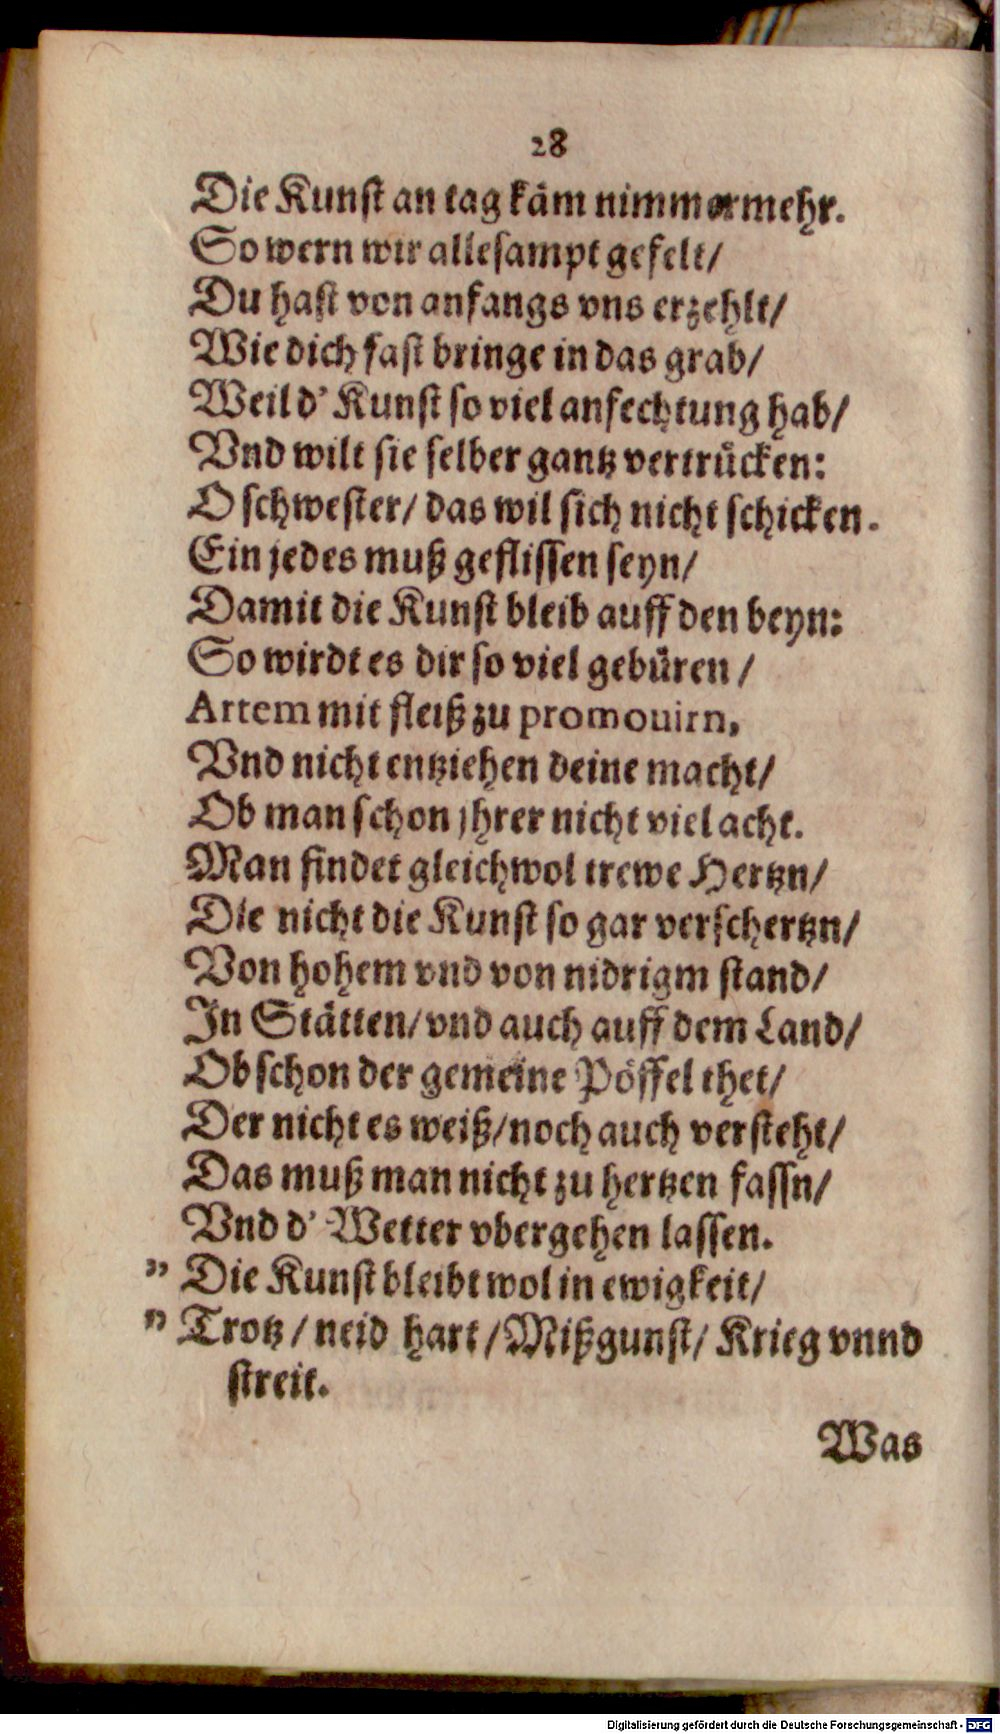 28
Die Kunst an tag käm nimmermehr.
So wern wir allesampt gefelt/
Du hast von anfangs vns erzehlt/
Wie dich fast bringe in das grab/
Weil d' Kunst so viel anfechtung hab/
Vnd wilt sie selber gantz vertrücken:
O schwester/ das wil sich nicht schicken.
Ein jedes muß geflissen seyn/
Damit die Kunst bleib auff den beyn:
So wirdt es dir so viel gebüren/
Artem mit fleiß zu promouirn,
Vnd nicht entziehen deine macht/
Ob man schon jhrer nicht viel acht.
Man findet gleichwol trewe Hertzn/
Die nicht die Kunst so gar verschertzn/
Von hohem vnd von nidrigm stand/
In Stätten/ vnd auch auff dem Land/
Ob schon der gemeine Pöffel thet/
Der nicht es weiß/ noch auch versteht/
Das muß man nicht zu hertzen fassn/
Vnd d' Wetter vbergehen lassen.
" Die Kunst bleibt wol in ewigkeit/
" Trotz/ neid hart/ Mißgunst/ Krieg vnnd
streit.
Was
Digitalisierung gefördert durch die Deutsche Forschungsgemeinschaft - DFG